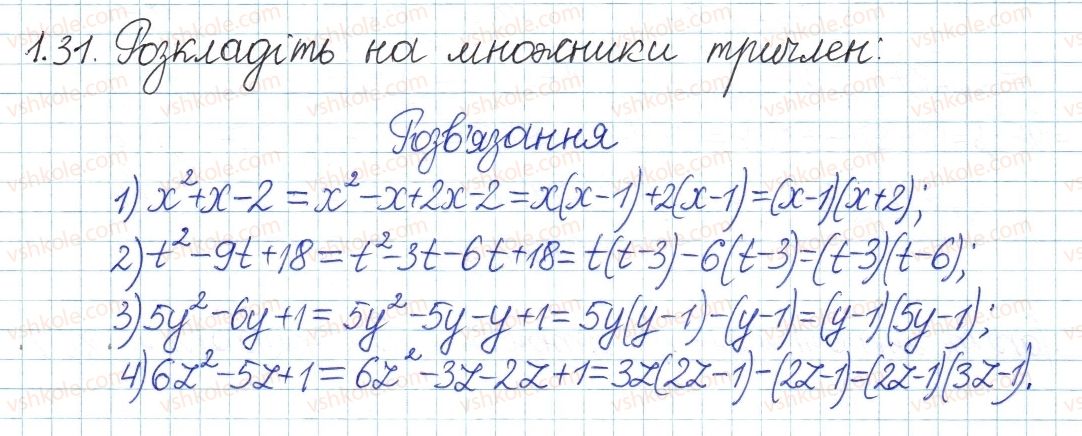 1.31. Розкладіть на множники тричлен:
Розв'язання
1) x²+x-2 = x²-x+2x-2 = x(x-1)+2(x-1)=(x-1)(x+2);
2) t²-9t+18 = t²-3t-6t+18 = t(t-3)-6(t-3)=(t-3)(t-6);
3) 5y²-6y+1 = 5y²-5y-y+1 = 5y(y-1)-(y-1)=(y-1)(5y-1);
4) 6z²-5z+1 = 6z²-3z-2z+1 = 3z(2z-1)-(2z-1)=(2z-1)(3z-1).
vshkole.com